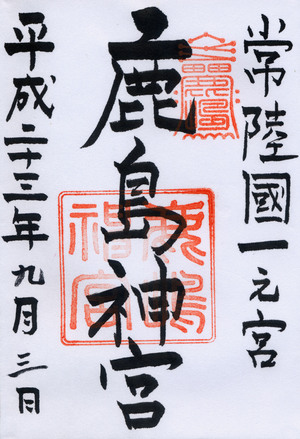 常陸國一之宮
鹿島神宮
鹿嶋
神宮
平成二十三年九月三日